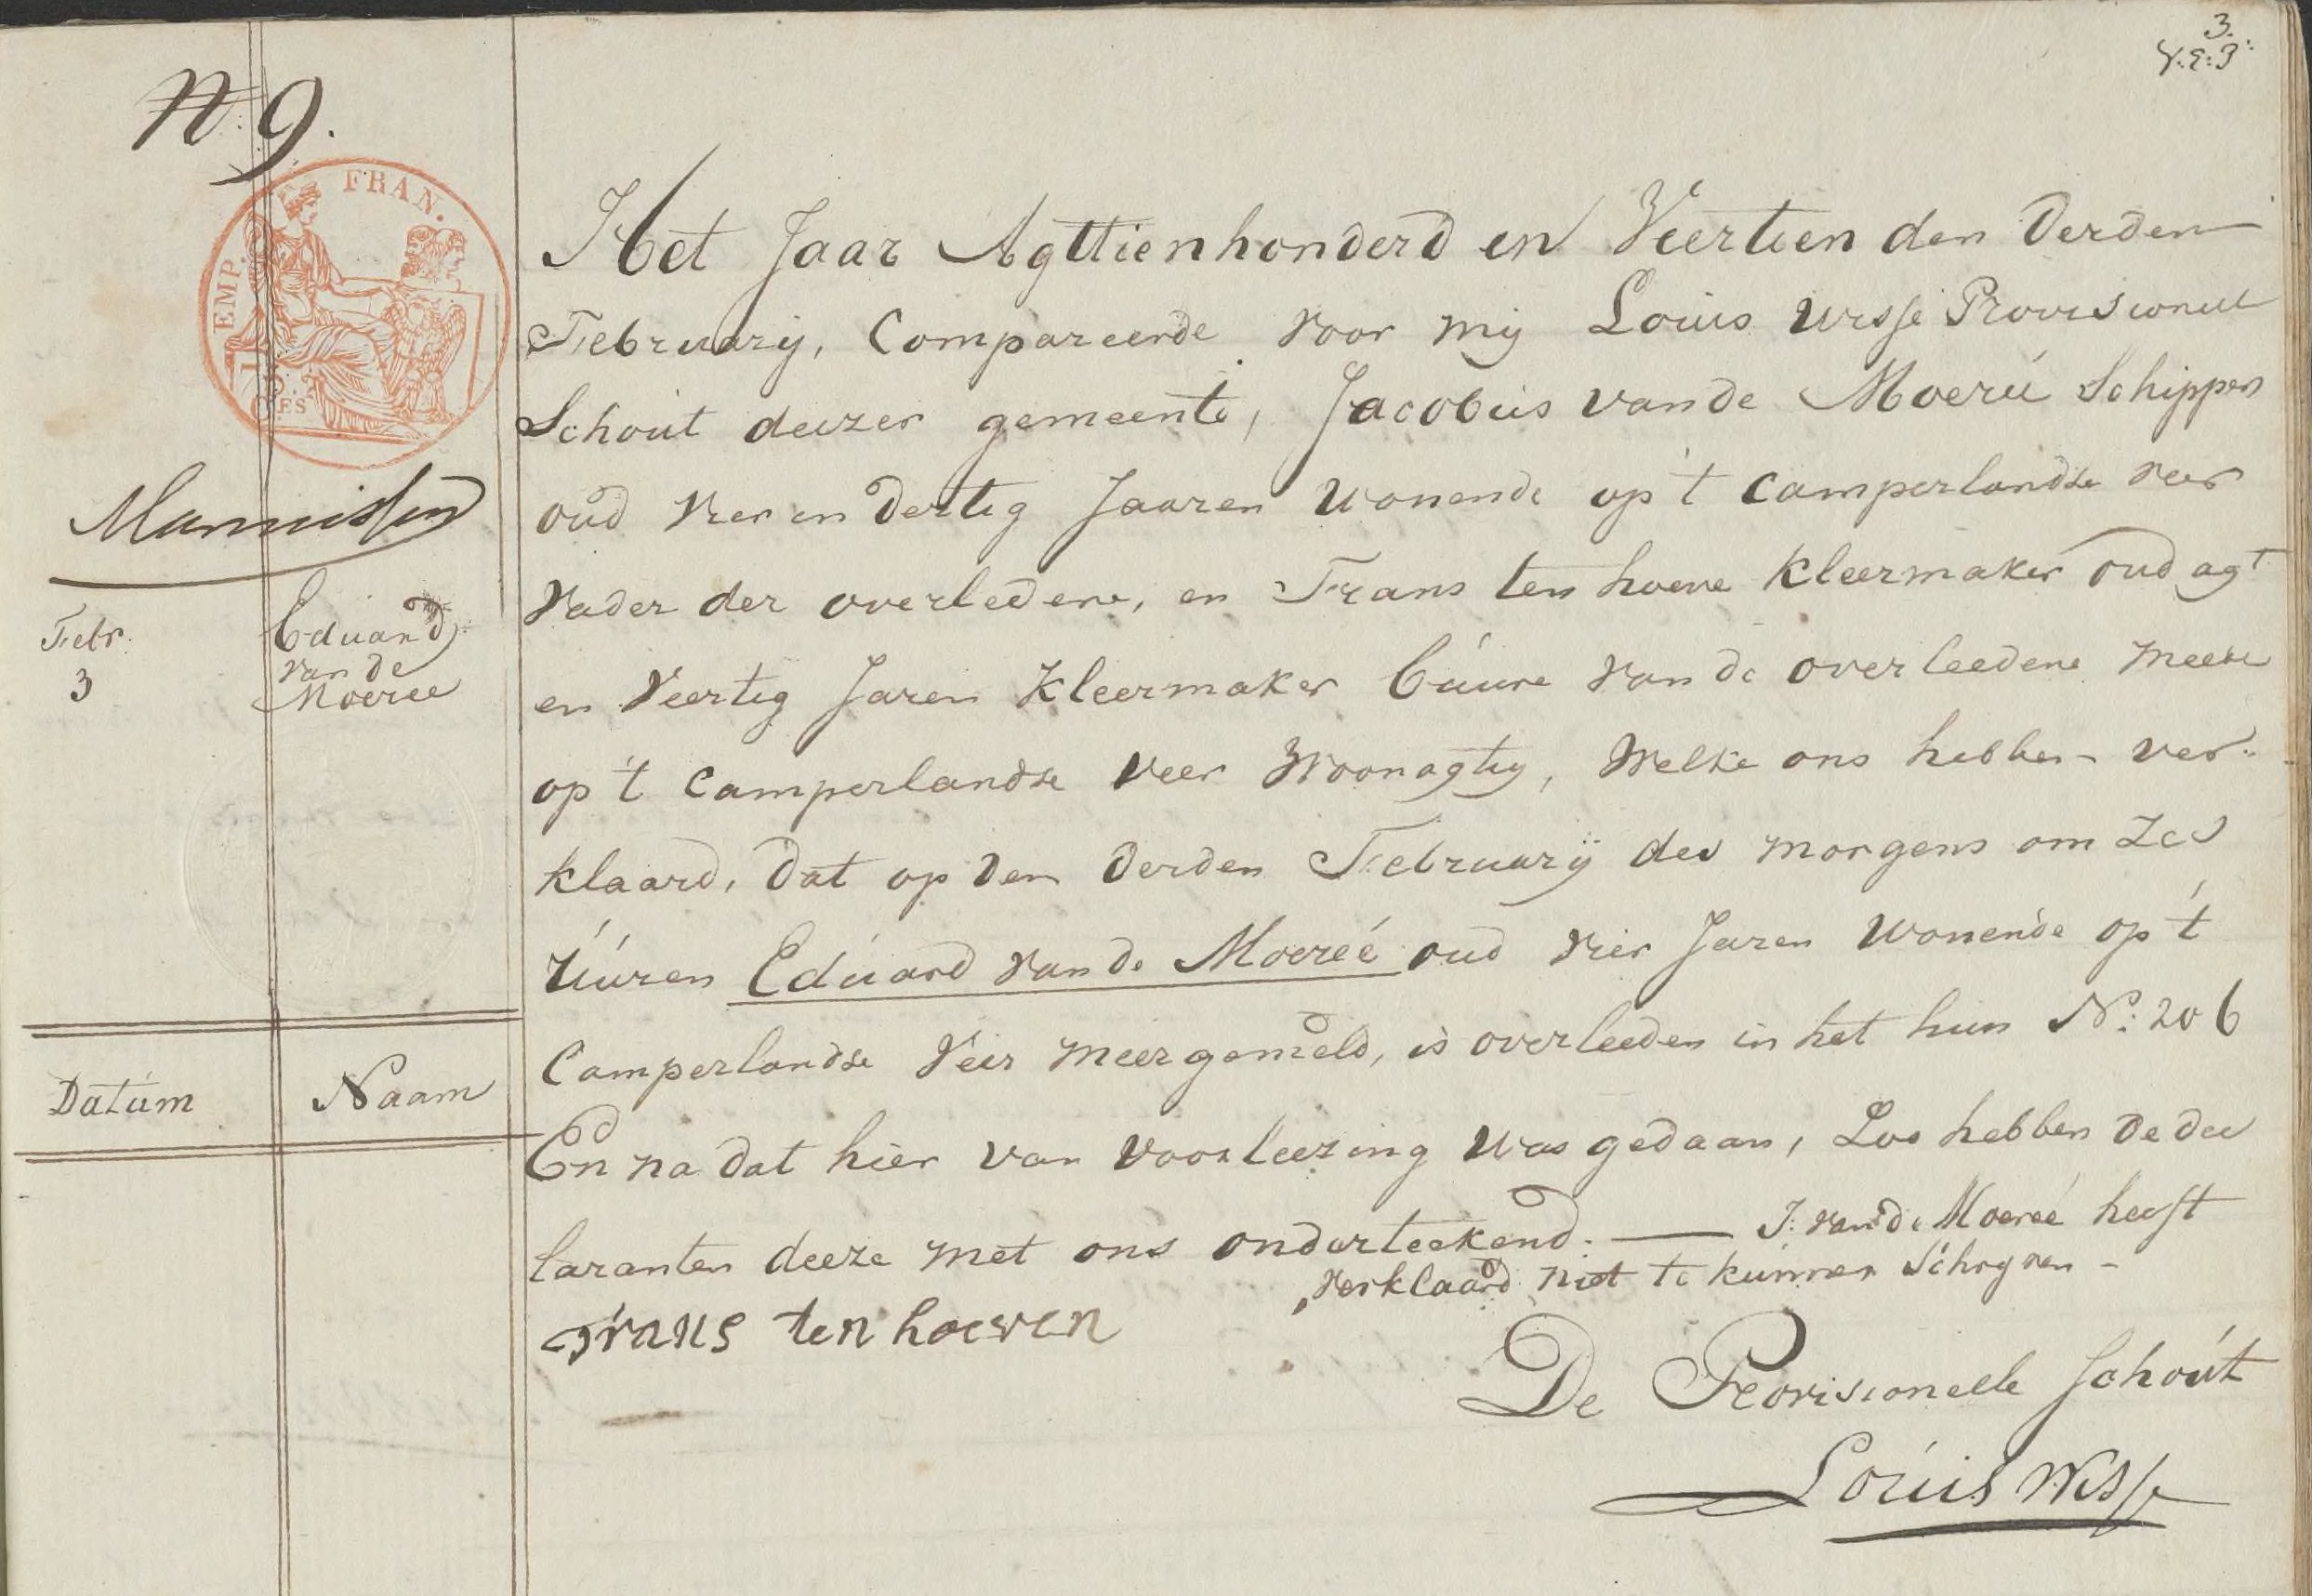 3.
N: 9.
EMP. FRAN.
Het Jaar Agttienhonderd en Veertien den Derden
February, Compareerde voor mij Louis Wisse Provisioneel
Schout deezer gemeente, Jacobus vande Moereé Schipper
oud vier en dertig Jaaren wonende op 't Camperlandse veer
Vader der overledene, en Frans ten hoeve kleermaker oud agt
en Veertig Jaren Kleermaker buure van de overleedene meede
op 't Camperlandse veer Woonagtig, Welke ons hebben ver-
klaard, dat op den derden February des morgens om zes
uuren Eduard van de Moereé oud vier Jaren wonende op 't
Camperlandse Veer meergemeld, is overleeden in het huis N: 206
En na dat hier van voorleezing was gedaan, Zoo hebben de dec
laranten deeze met ons onderteekend. — J: van de Moereé heeft
verklaard niet te kunnen Schryven -
Frans ten hoeven
De Provisioneele Schout
Louis Wisse
Febr.
3
Eduard
van de
Moeree
Datum
Naam